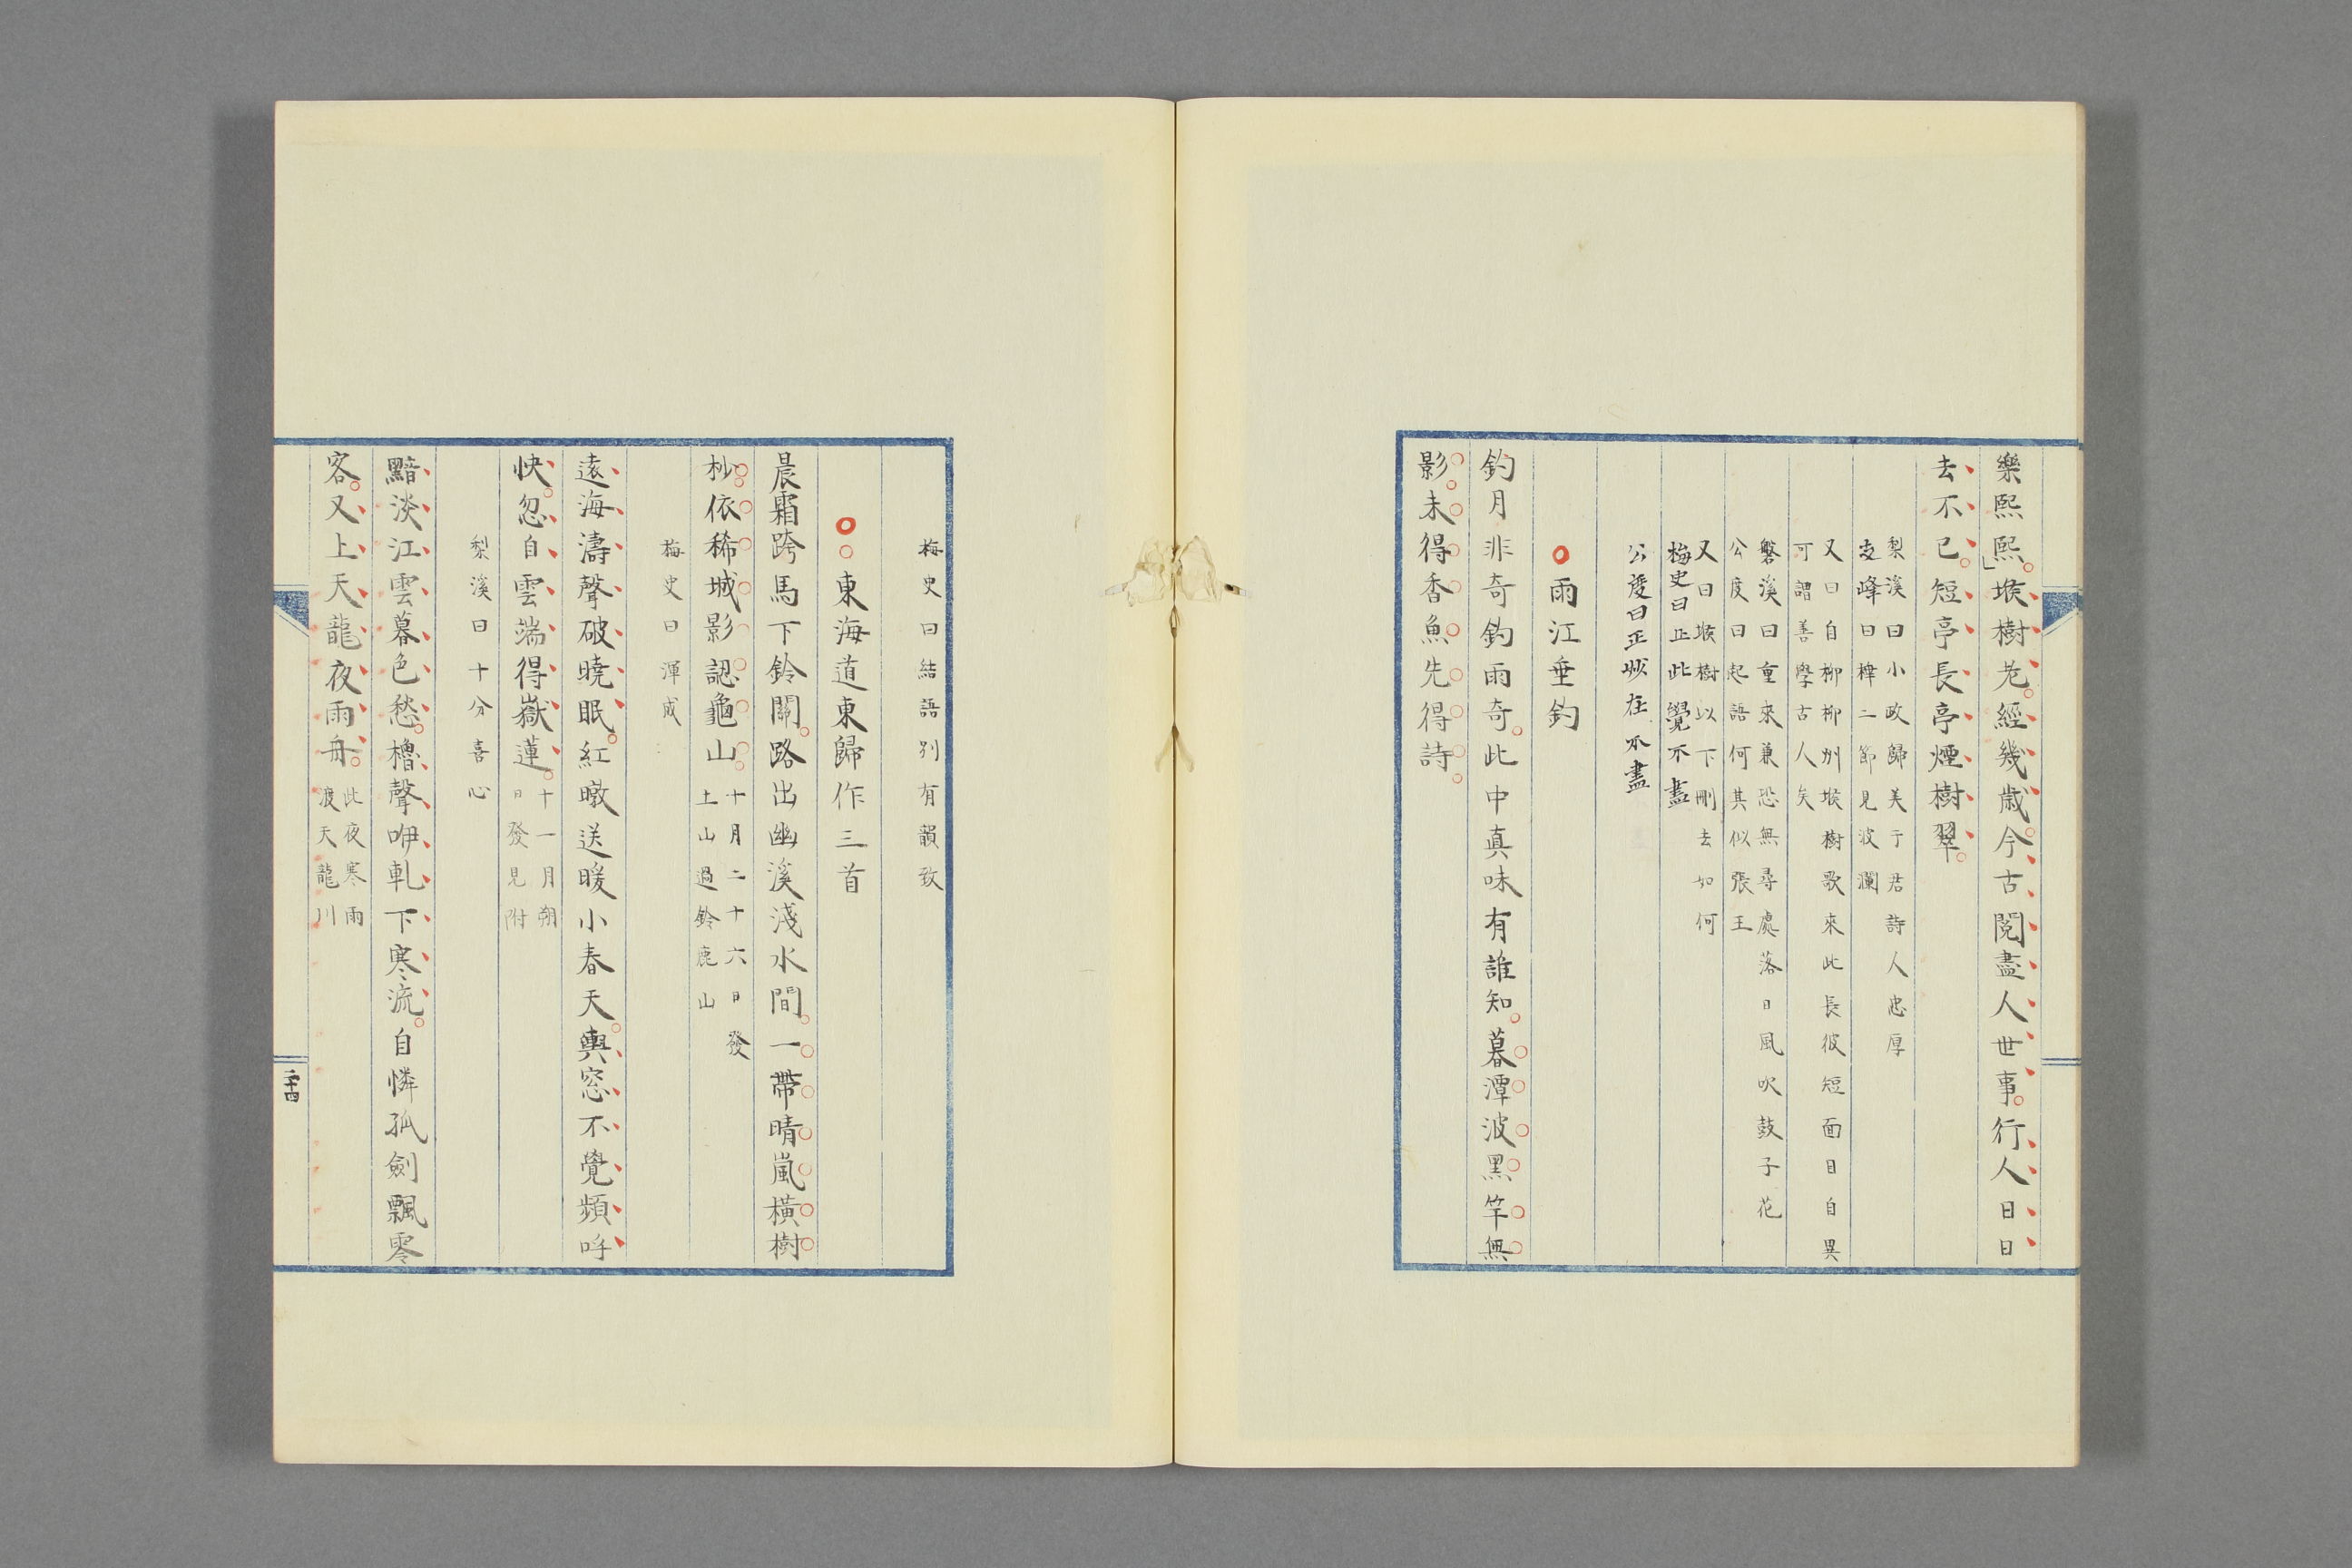 樂熙熙」堠樹老經幾歲今古閱盡人世事行人日日
去不已短亭長亭煙樹翠
梨溪曰小政歸美于君詩人忠厚
支峰曰樺二節見波瀾
又曰自柳柳州堠樹歌來此長彼短面目自異
可謂善學古人矣
磐溪曰重來兼恐無尋處落日風吹鼓子花
公度曰起語何其似張王
又曰堠樹以下刪去如何
梅史曰正此覺不盡
公度曰正妙在不盡
雨江垂釣
釣月非奇釣雨奇此中真味有誰知暮潭波黑竿無
影未得香魚先得詩
梅史曰結語別有韻致
東海道東歸作三首
晨霜跨馬下鈴關路出幽溪淺水間一帶晴嵐橫樹
杪依稀城影認龜山十月二十六日發
土山過鈴鹿山
梅史曰渾成
遠海濤聲破曉眠紅暾送暖小春天輿窓不覺頻呼
快忽自雲端得嶽蓮十一月朔
日發見附
梨溪曰十分喜心
黯淡江雲暮色愁櫓聲咿軋下寒流自憐孤劍飄零
客又上天龍夜雨舟此夜寒雨
渡天龍川
二十四